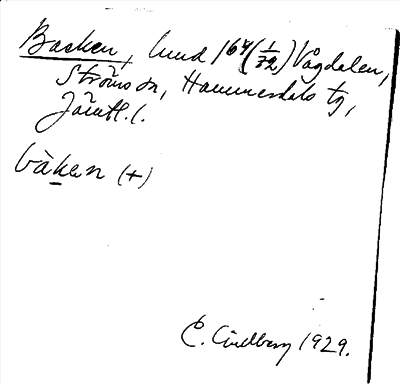 Backen, lund 164 (1/72) Vågdalen,
Ströms sn, Hammerdals tg,
Jämtl. l.
bàken (+)
E. Lindberg 1929.